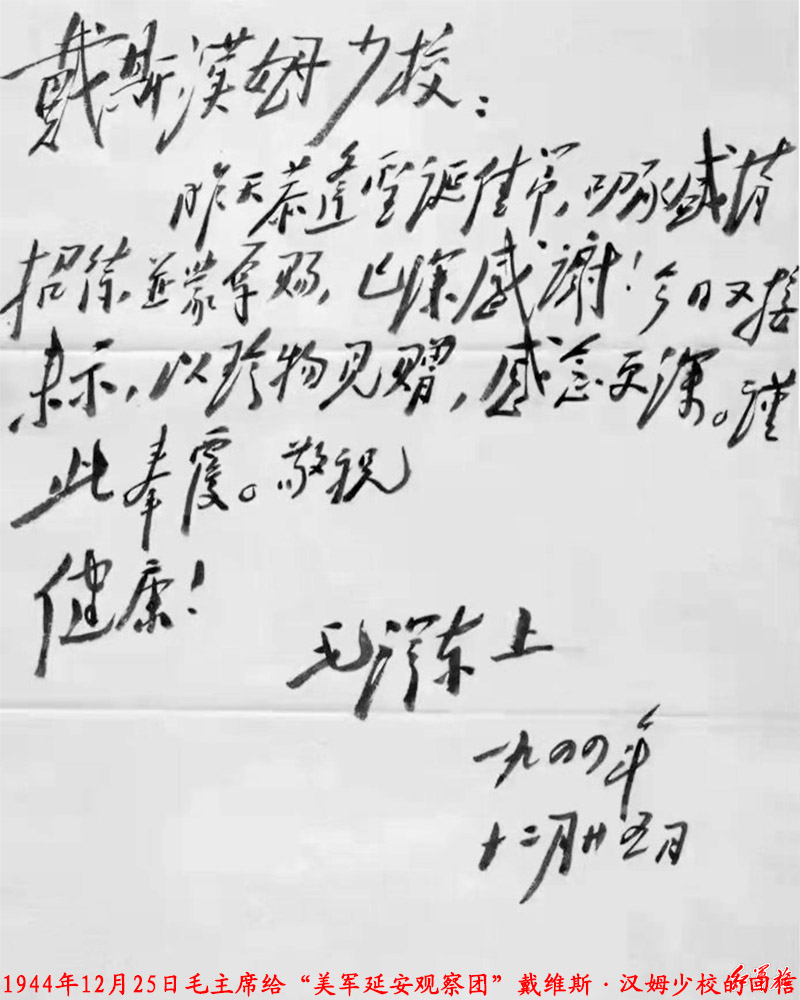 戴斯漢姆少校：
昨天恭逢聖誕佳节，叨承盛
招待，並蒙厚賜，已深感謝！今日又接
来示，以珍物見，感念更深。謹
此奉覆。敬祝
健康！
毛澤东上
一九四四年
十二月廿五日
1944年12月25日毛主席给“美军延安观察团”戴维斯·汉姆少校的回信